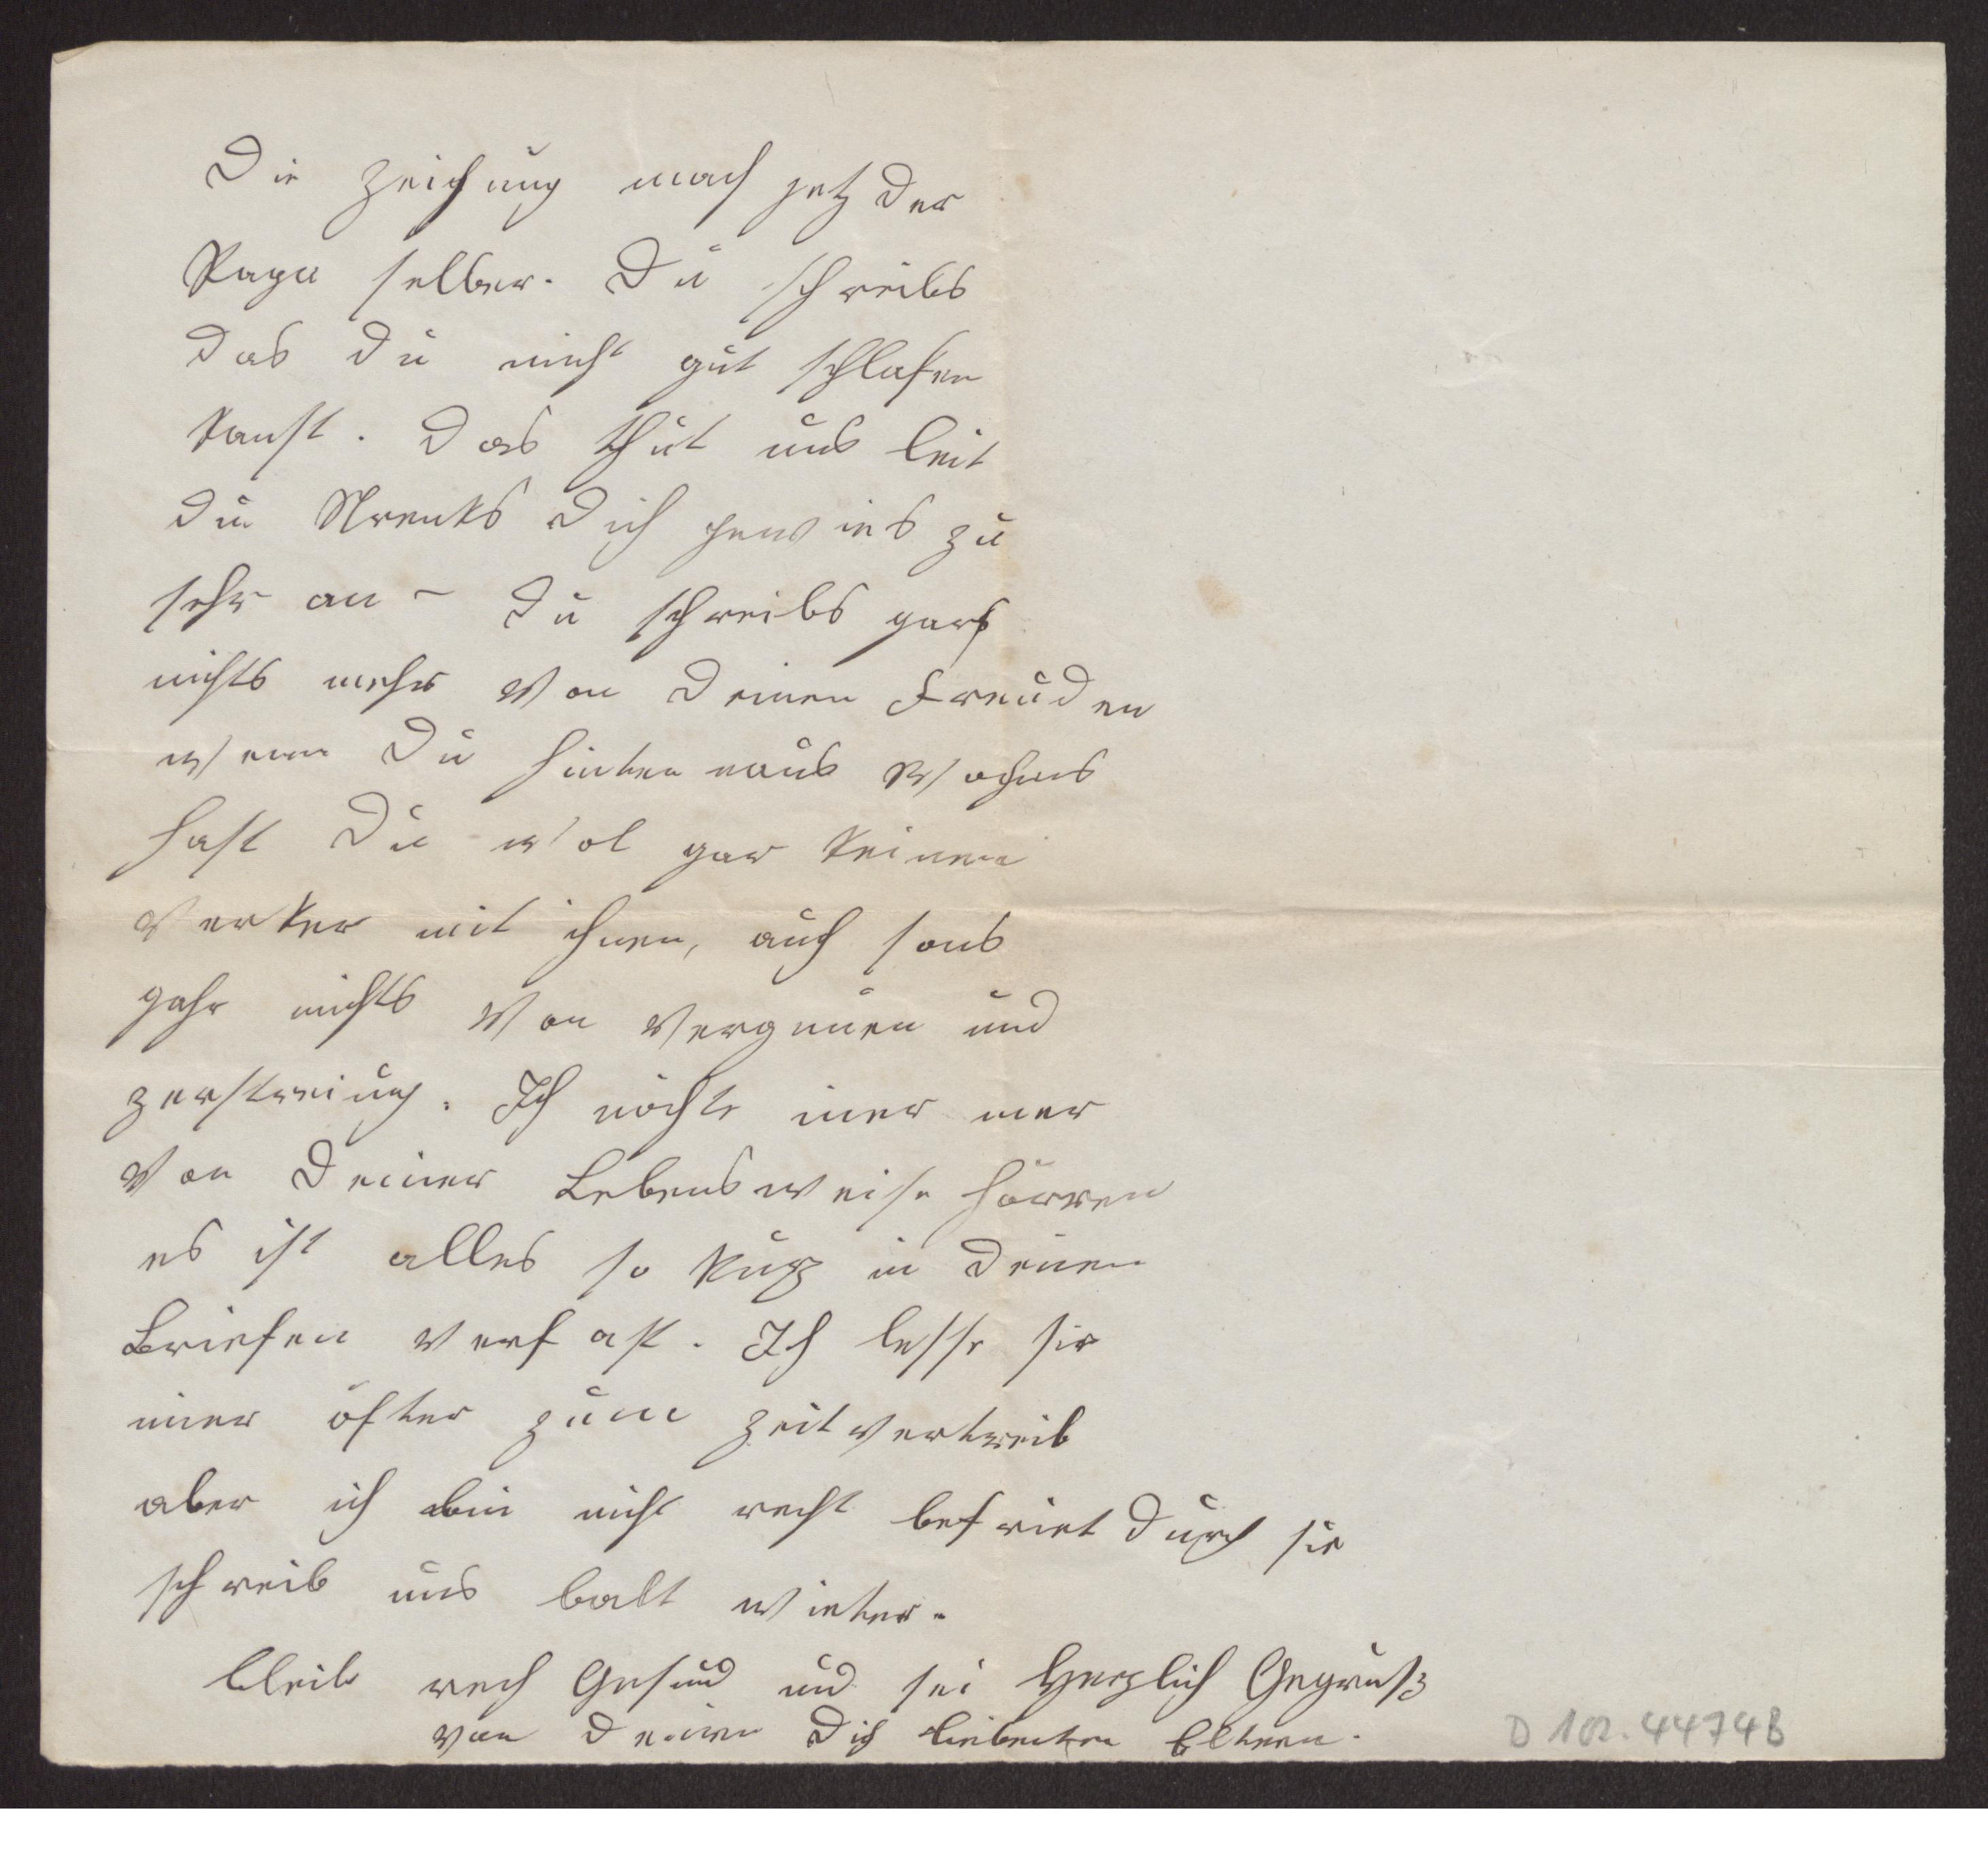 Die Zeichung mach jetz der
Papa selber. Du schreibs
das du nicht gut schlafen
kanst. Das thut uns leit
du Strenks dich gewies zu
sehr an – du schreibs gar
nichts mehr von deinen Freuden
wenn du hinten naus wohns
hast du wol gar keinen
verker mit ihnen, auch sons
gahr nichts von vergnüen und
zerstreiung. Ich möchte imer mer
von deiner Lebensweise hörren
es ist alles so kurz in deinen
Briefen verfast. Ich lesse sie
imer öfter zum zeitvertreib
aber ich bin nicht recht befriet durch sie
schreib uns balt wieter.
bleib rech Gesund und sei Herzlich Gegrußz
von deinen dich liebenten Eltern.
D 102.44774B